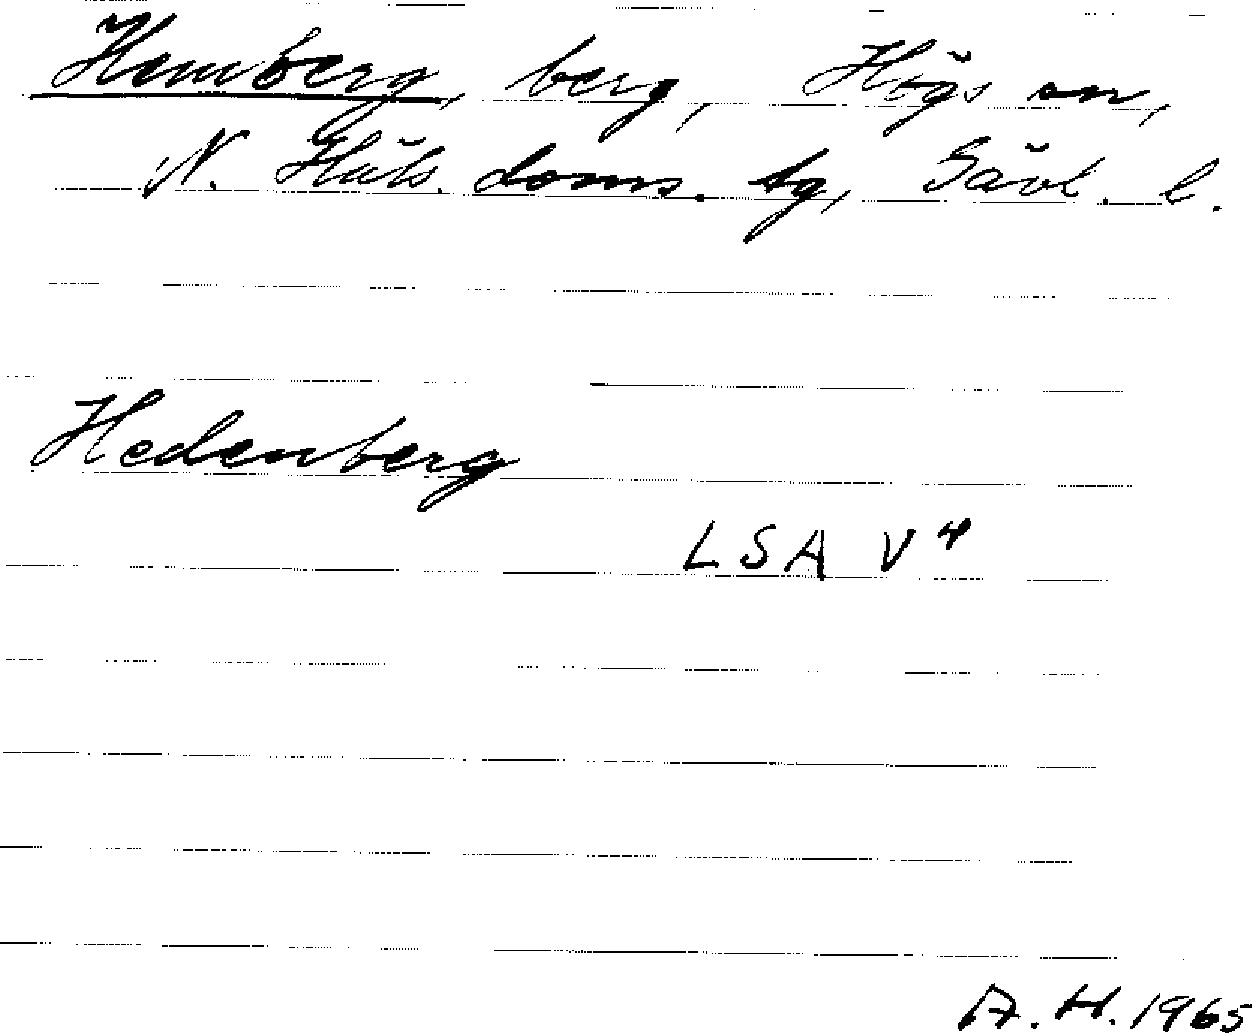 Hemberg, berg, Högs sn,
N. Häls. doms. tg, Gävl. l.
Hedenberg
LSA V 4
A. H. 1965